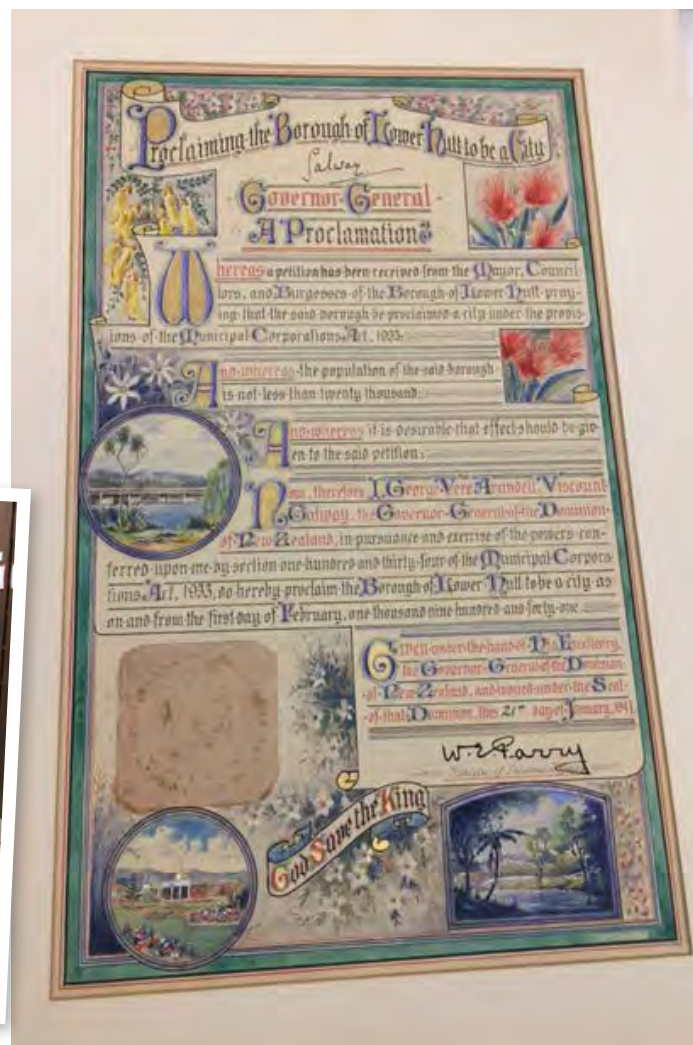 Proclaiming the Borough of Lower Hutt to be a City
Galway
Governor-General
A Proclamation
Whereas a petition has been received from the Mayor, Council-
lors, and Burgesses of the Borough of Lower Hutt pray-
ing that the said borough be proclaimed a city under the provis-
ions of the Municipal Corporations Act, 1933:
And whereas the population of the said borough
is not less than twenty thousand:
And whereas it is desirable that effect should be giv-
en to the said petition:
Now, therefore I, George Vere Arundell, Viscount
Galway, the Governor-General of the Dominion
of New Zealand, in pursuance and exercise of the powers con-
ferred upon me by section one hundred and thirty-four of the Municipal Corpora-
tions Act, 1933, do hereby proclaim the Borough of Lower Hutt to be a city as
on and from the first day of February, one thousand nine hundred and forty-one.
Given under the hand of His Excellency,
the Governor-General of the Dominion
of New Zealand, and issued under the Seal
of that Dominion, this 21st day of January, 1941.
W.E. Parry
Minister of Internal
God Save the King